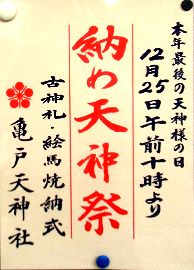 本年最後の天神様の日
12月25日午前十時より
納め天神祭
古神札・絵馬焼納式
亀戸天神社